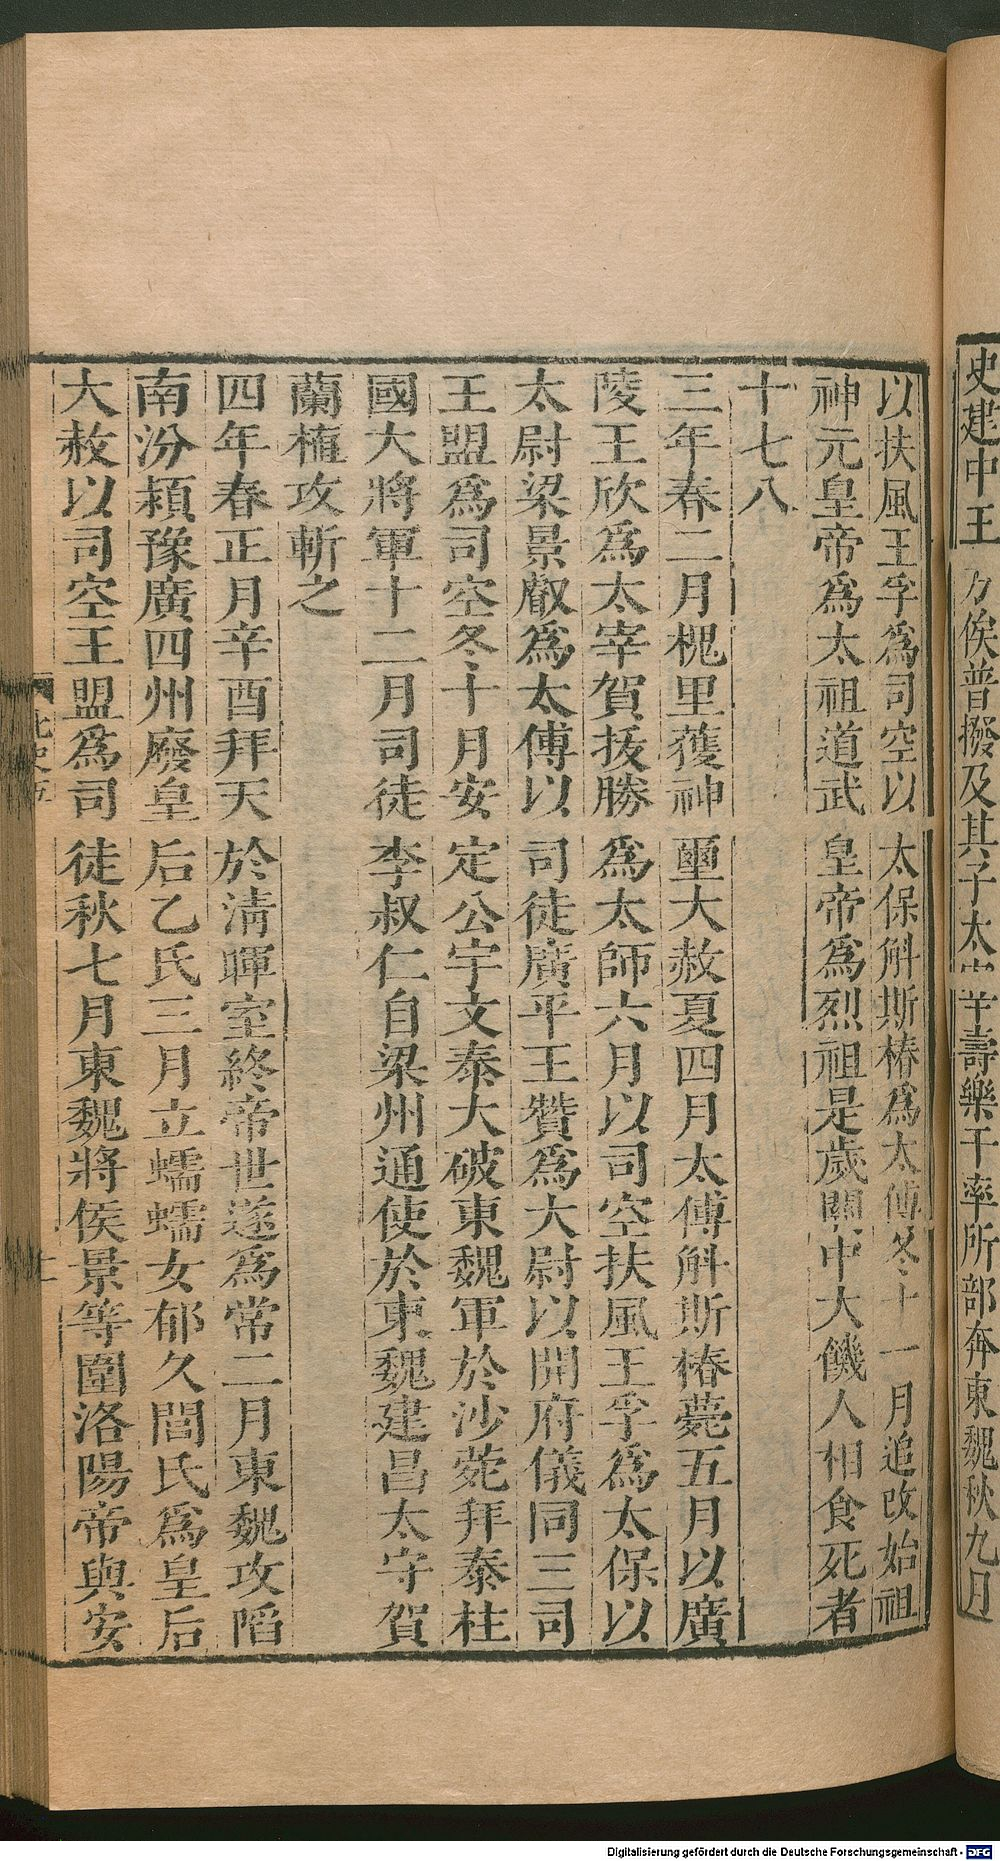 史建中王 万俟普撥及其子太宰壽樂干率所部奔東魏秋九月
以扶風王孚爲司空以太保斛斯椿爲太傅冬十一月追改始祖
神元皇帝爲太祖道武皇帝爲烈祖是歲關中大饑人相食死者
十七八
三年春二月槐里獲神璽大赦夏四月太傅斛斯椿薨五月以廣
陵王欣爲太宰賀拔勝爲太師六月以司空扶風王孚爲太保以
太尉梁景叡爲太傅以司徒廣平王贊爲大尉以開府儀同三司
王盟爲司空冬十月安定公宇文泰大破東魏軍於沙苑拜泰柱
國大將軍十二月司徒李叔仁自梁州通使於東魏建昌太守賀
蘭植攻斬之
四年春正月辛酉拜天於清暉室終帝世遂爲常二月東魏攻陷
南汾潁豫廣四州廢皇后乙氏三月立蠕蠕女郁久閭氏爲皇后
大赦以司空王盟爲司徒秋七月東魏將侯景等圍洛陽帝與安
北史五
十一
Digitalisierung gefördert durch die Deutsche Forschungsgemeinschaft - DFG